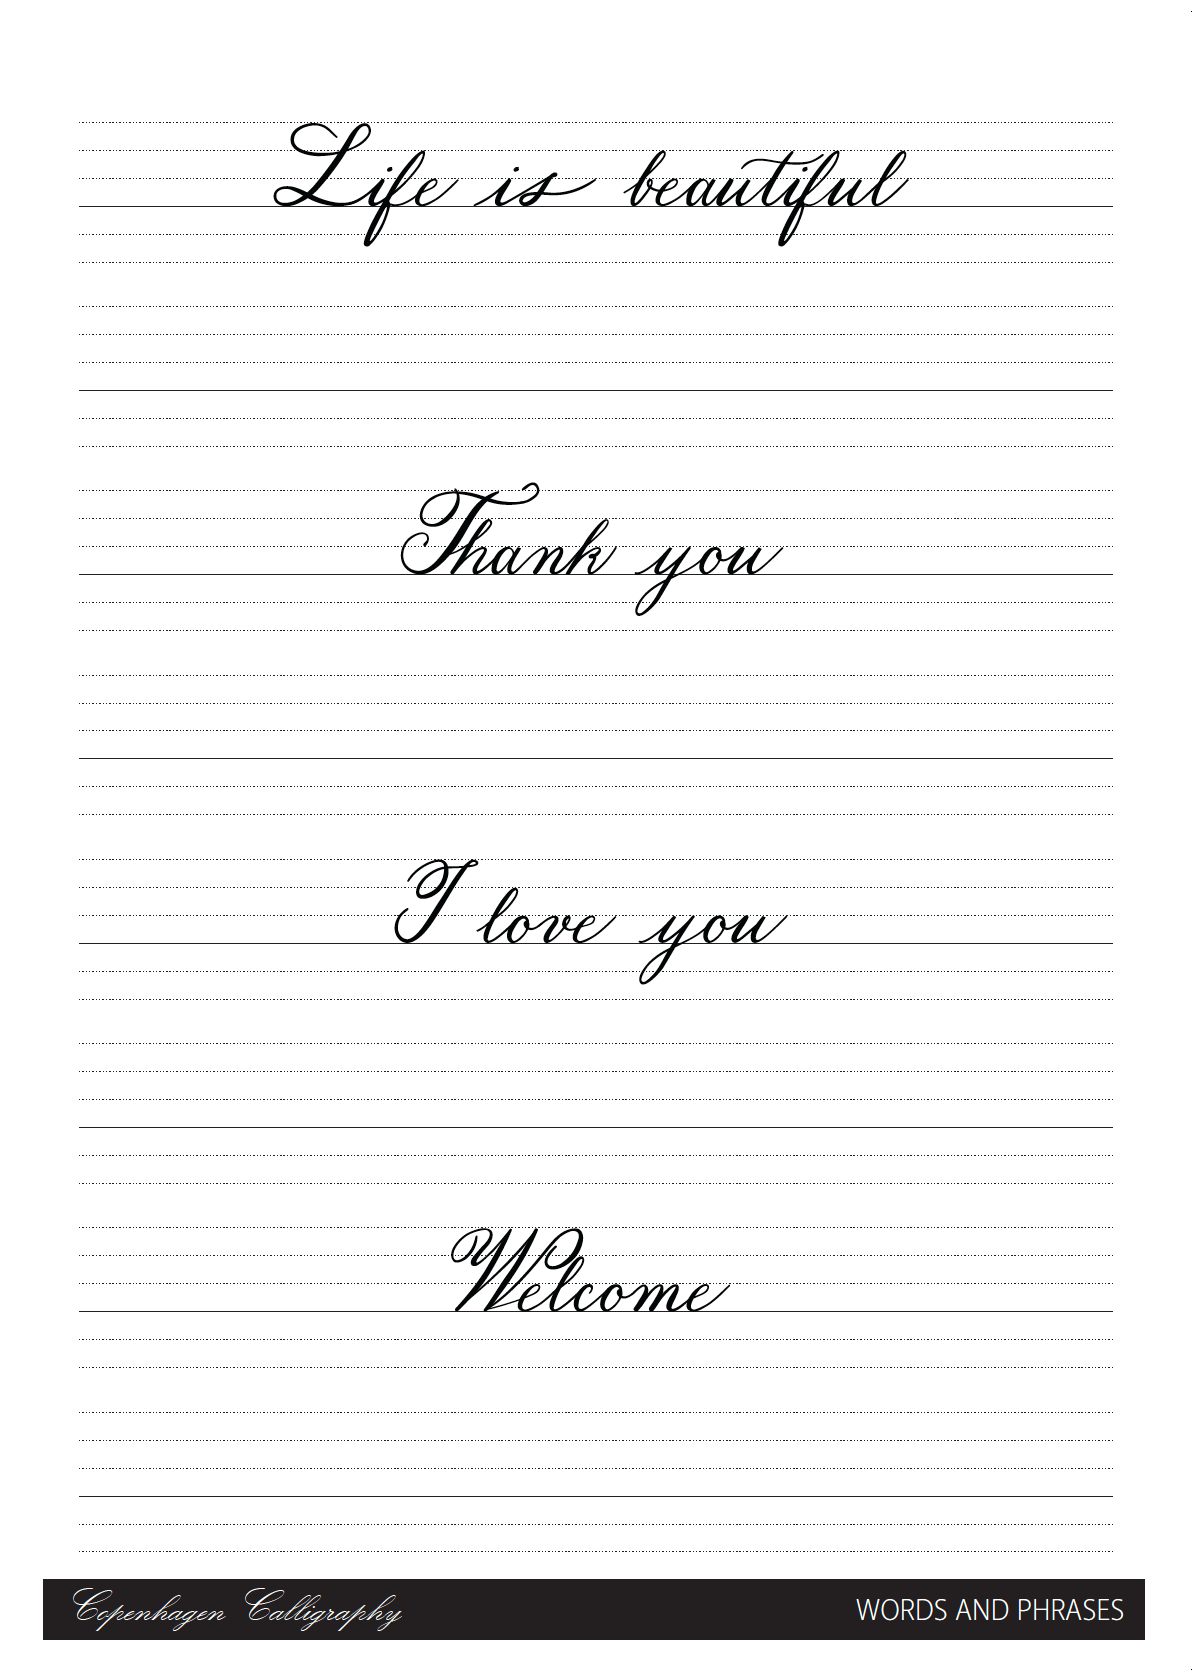 Life is beautiful
Thank you
I love you
Welcome
Copenhagen Calligraphy WORDS AND PHRASES